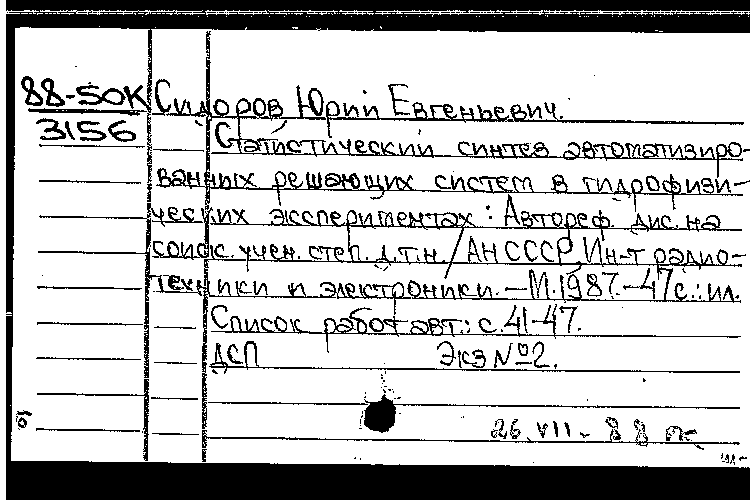 88-50К Сидоров Юрий Евгеньевич.
3156
Статистический синтез автоматизиро-
ванных решающих систем в гидрофизи-
ческих экспериментах: Автореф. дис. на
соиск. учен. степ. д.т.н. / АН СССР, Ин-т радио-
техники и электроники. – М. 1987. – 47 с.: ил.
Список работ авт.: с. 41-47.
ДСП Экз №2.
26.VII-88